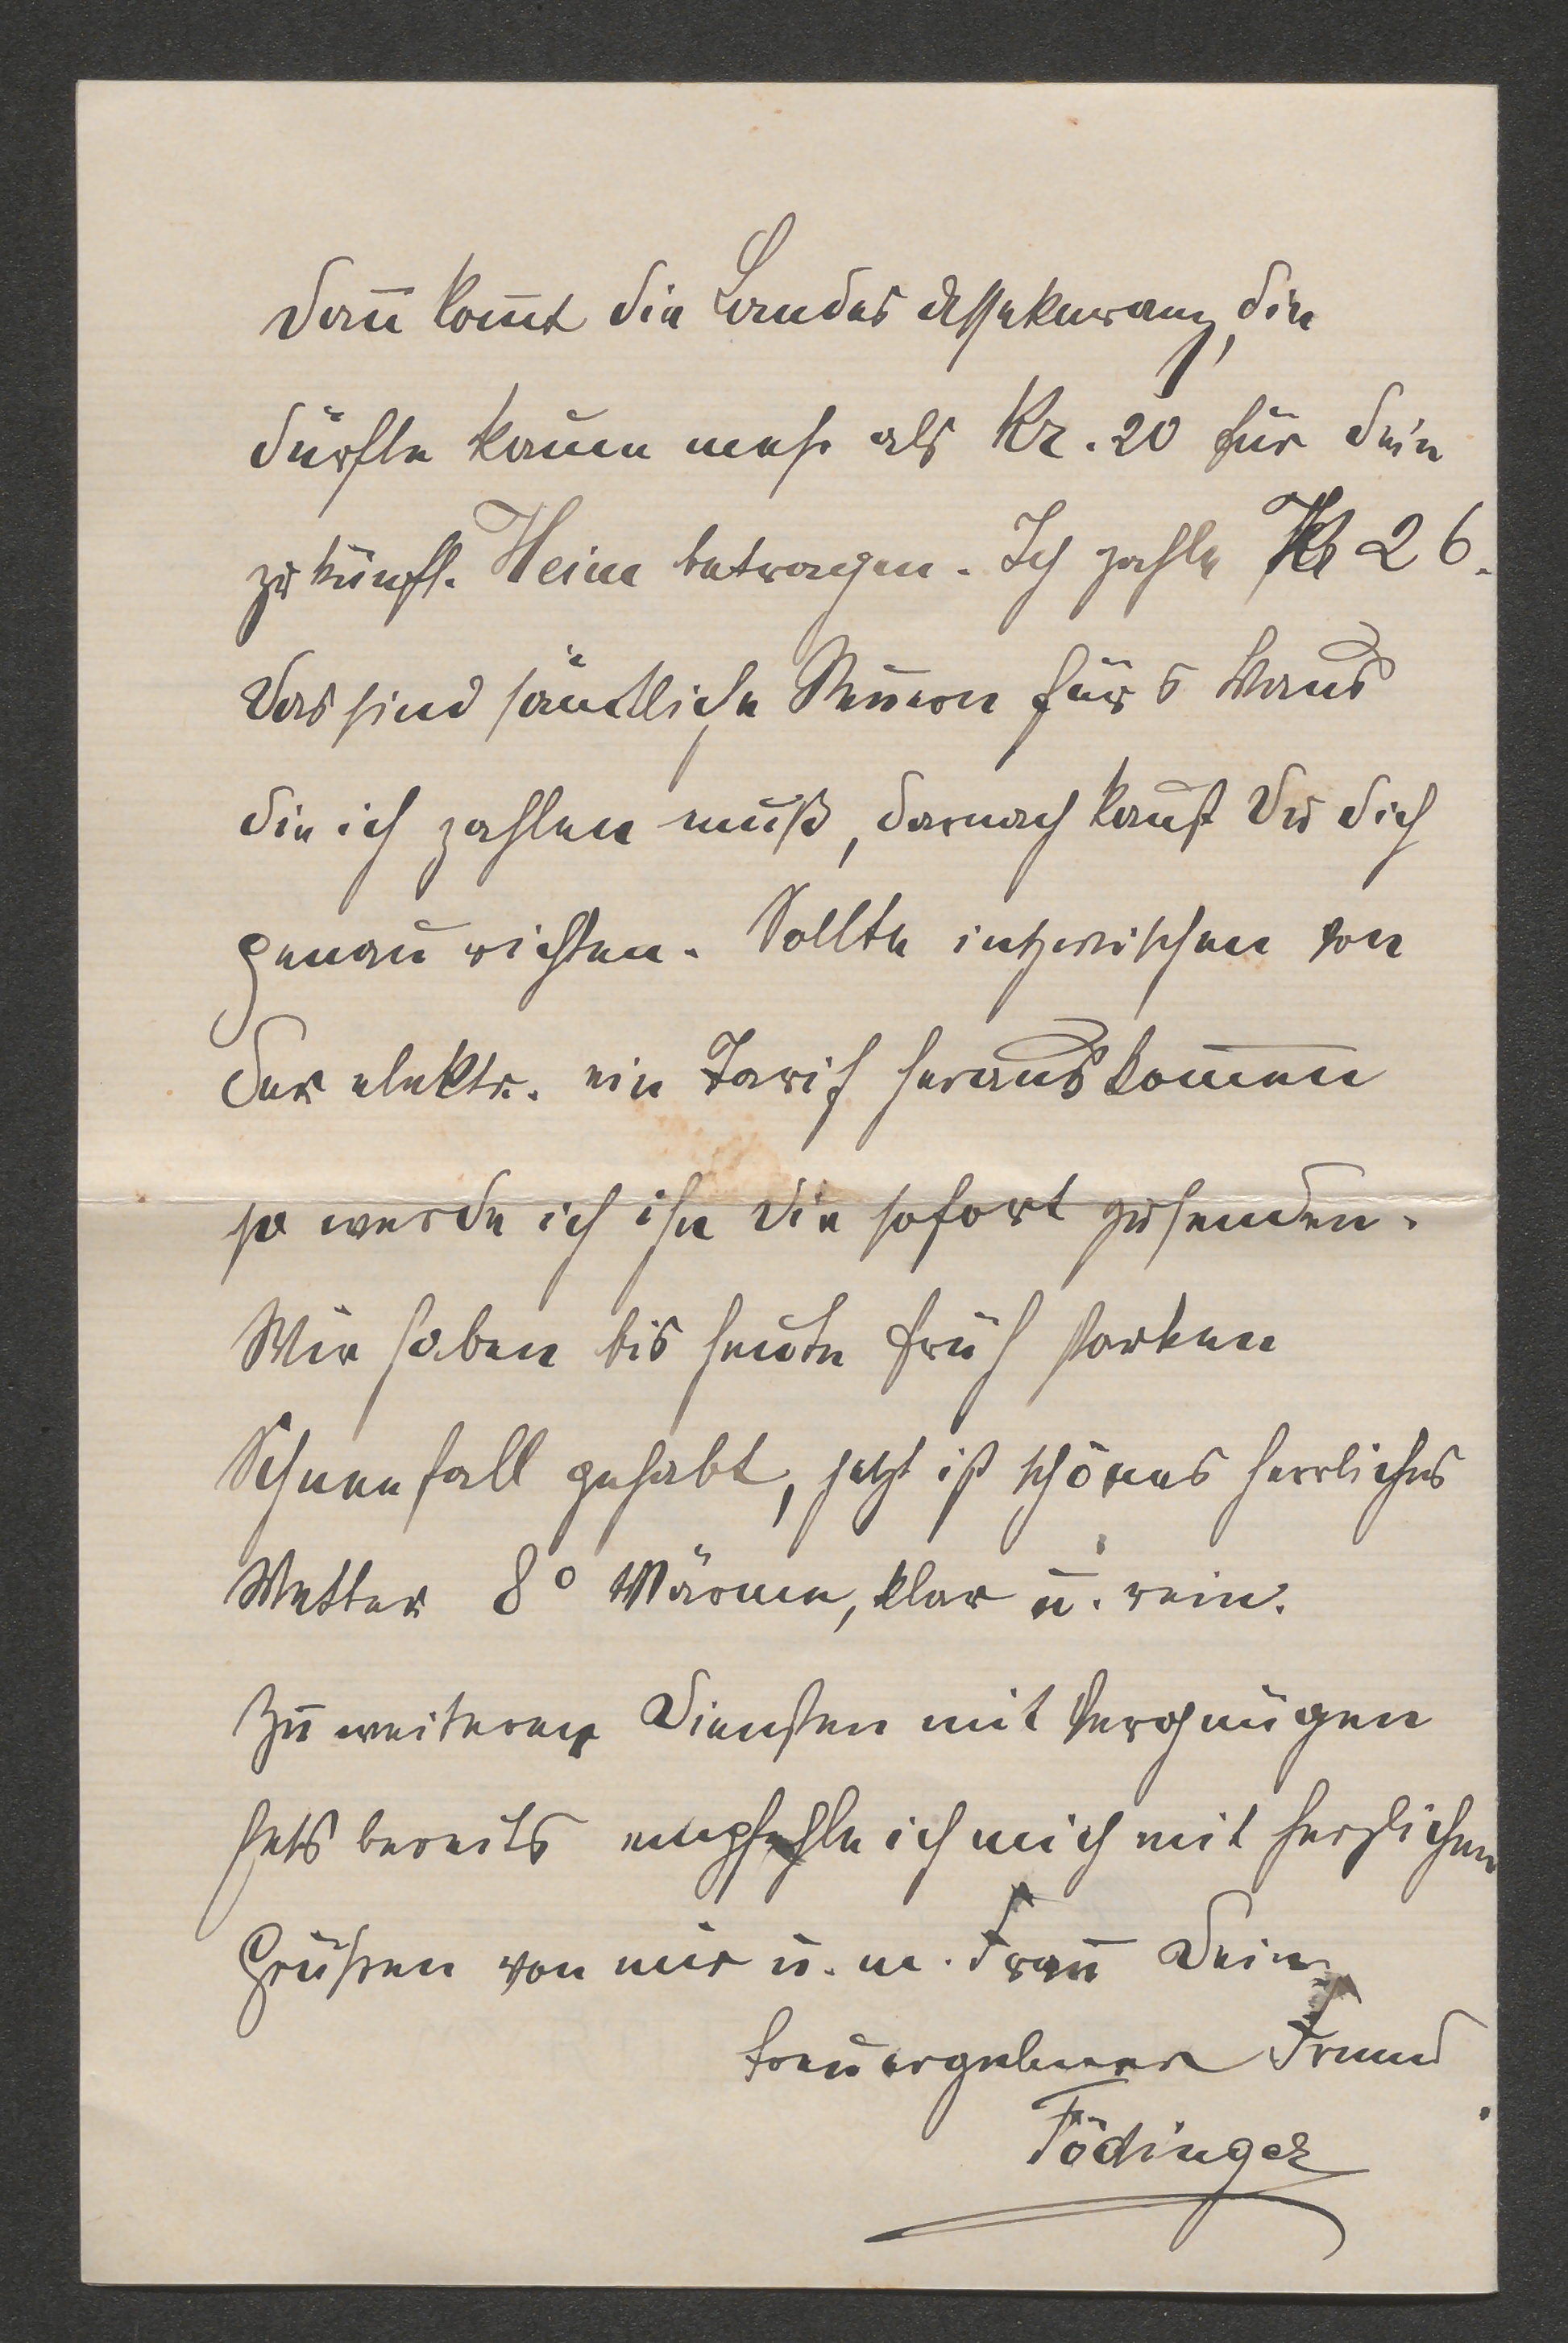 Dan̄ kom̄t die Landes Assekuranz, die
dürfte kaum mehr als Kr. 20 für dein
zukünft. Heim betragen. Ich zahle Kr 26.
Das sind sämtliche Steuern für's Haus
die ich zahlen muß, darnach kan̄st Du dich
genau richten. Sollte inzwischen von
der elektr. ein Tarif herauskom̄en
so werde ich ihn Dir sofort zusenden.
Wir haben bis heute früh starken
Schneefall gehabt, jetzt ist schönes herrliches
Wetter 8° Wärme, klar u. rein.
Zu weiteren Diensten mit Vergnügen
stets bereits empfehle ich mich mit herzlichen
Grüßen von mir u. m. Frau Dein
treuergebener Freund
Födinger